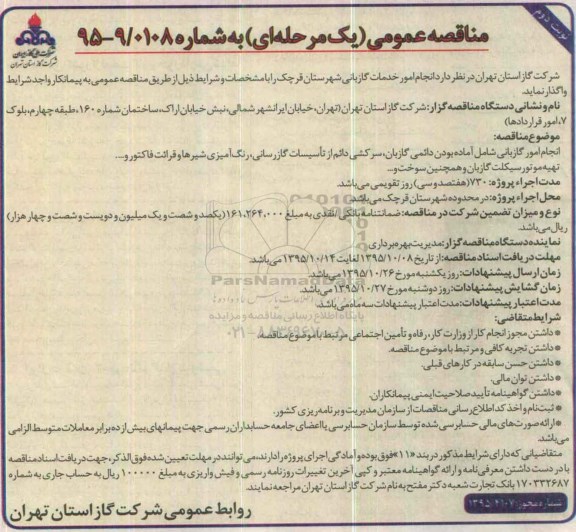 نوبت دوم
مناقصه عمومی (یک مرحله‌ای) به شماره ۹/۰۱۰۸-۹۵
شرکت گاز استان تهران
شرکت گاز استان تهران در نظر دارد انجام امور خدمات گازبانی شهرستان قرچک را با مشخصات و شرایط ذیل از طریق مناقصه عمومی به پیمانکار واجد شرایط
واگذار نماید.
نام و نشانی دستگاه مناقصه گزار: شرکت گاز استان تهران (تهران، خیابان ایرانشهر شمالی، نبش خیابان اراک، ساختمان شماره ۱۶۰، طبقه چهارم، بلوک
۷، امور قراردادها)
موضوع مناقصه:
انجام امور گازبانی شامل آماده بودن دائمی گازبان، سرکشی دائم از تأسیسات گازرسانی، رنگ آمیزی شیرها و قرائت فاکتور و....
تهیه موتور سیکلت گازبان و همچنین سوخت و...
مدت اجراء پروژه: ۷۳۰ (هفتصد و سی) روز تقویمی می‌باشد.
محل اجراء پروژه: در محدوده شهرستان قرچک می‌باشد.
نوع و میزان تضمین شرکت در مناقصه: ضمانتنامه بانکی/نقدی به مبلغ ۱۶۱،۲۶۴،۰۰۰ (یکصد و شصت و یک میلیون و دویست و شصت و چهار هزار)
ریال می‌باشد.
نماینده دستگاه مناقصه گزار: مدیریت بهره برداری
مهلت دریافت اسناد مناقصه: از تاریخ ۱۳۹۵/۱۰/۰۸ لغایت ۱۳۹۵/۱۰/۱۴ می‌باشد.
زمان ارسال پیشنهادات: روز یکشنبه مورخ ۱۳۹۵/۱۰/۲۶ می‌باشد.
زمان گشایش پیشنهادات: روز دوشنبه مورخ ۱۳۹۵/۱۰/۲۷ می‌باشد.
مدت اعتبار پیشنهادات: مدت اعتبار پیشنهادات سه ماه می‌باشد.
شرایط متقاضی:
* داشتن مجوز انجام کار از وزارت کار، رفاه و تأمین اجتماعی مرتبط با موضوع مناقصه.
* داشتن تجربه کافی و مرتبط با موضوع مناقصه.
* داشتن حسن سابقه در کارهای قبلی.
* داشتن توان مالی.
* داشتن گواهینامه تأیید صلاحیت ایمنی پیمانکاران.
* ثبت نام و اخذ کد اطلاع رسانی مناقصات از سازمان مدیریت و برنامه ریزی کشور.
* ارائه صورت های مالی حسابرسی شده توسط سازمان حسابرسی یا اعضای جامعه حسابداران رسمی جهت پیمانهای بیش از ده برابر معاملات متوسط الزامی
می‌باشد.
متقاضیانی که دارای شرایط مذکور در بند «۱۱» فوق بوده و آمادگی اجرای پروژه را دارند، می‌توانند در مهلت تعیین شده فوق الذکر، جهت دریافت اسناد مناقصه
با در دست داشتن معرفی نامه و ارائه گواهینامه معتبر و کپی آخرین تغییرات روزنامه رسمی و فیش واریزی به مبلغ ۱۰۰۰۰۰ ریال به حساب جاری به شماره
۱۷۰۳۳۲۶۸۷ بانک تجارت شعبه دکتر مفتح به نام شرکت گاز استان تهران مراجعه نمایند.
روابط عمومی شرکت گاز استان تهران
شماره مجوز: ۱۳۹۵.۴۱۰۷
ParsNamadData
پایگاه اطلاع رسانی مناقصه و مزایده